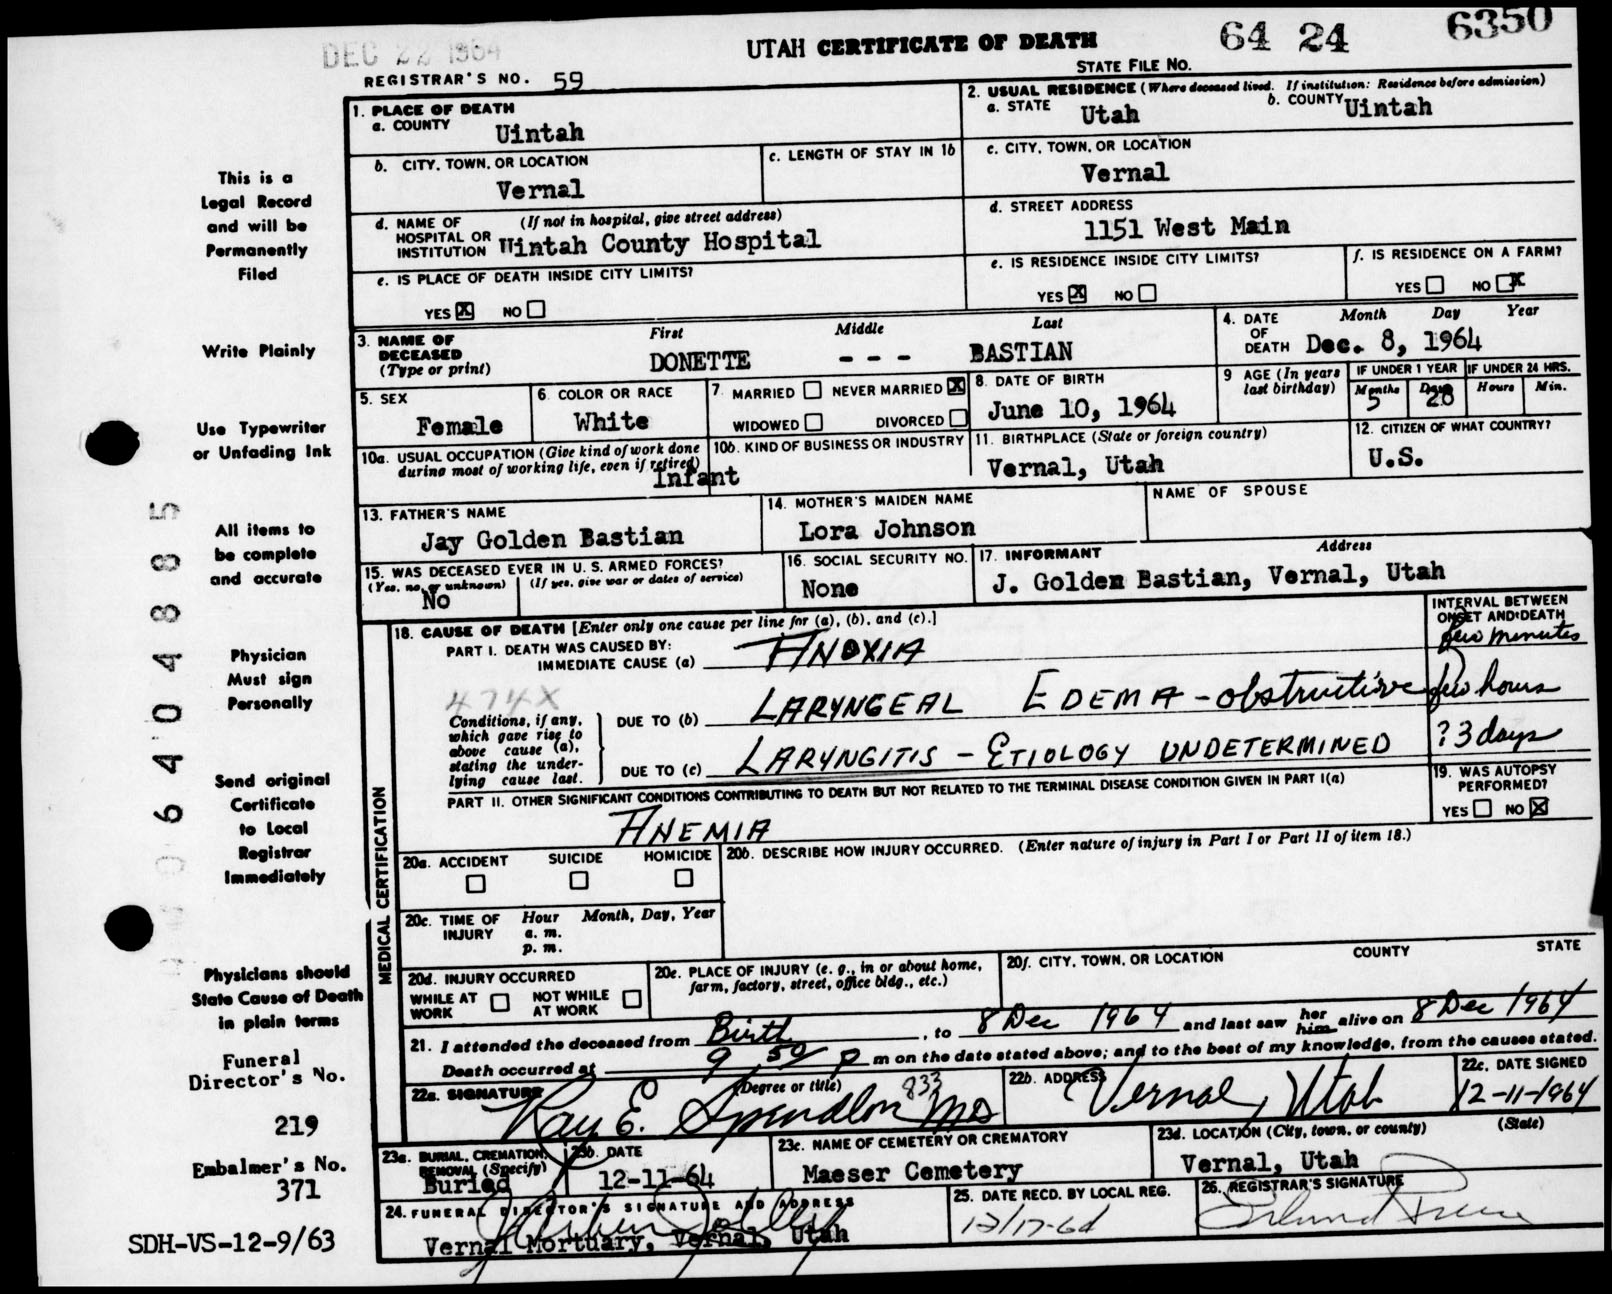 DEC 22 1964
UTAH CERTIFICATE OF DEATH
64 24 6350
REGISTRAR'S NO. 59
STATE FILE NO.
1. PLACE OF DEATH
a. COUNTY Uintah
2. USUAL RESIDENCE (Where deceased lived. If institution: Residence before admission)
a. STATE Utah b. COUNTY Uintah
b. CITY, TOWN, OR LOCATION
Vernal
c. LENGTH OF STAY IN 1b
c. CITY, TOWN, OR LOCATION
Vernal
d. NAME OF HOSPITAL OR INSTITUTION (If not in hospital, give street address)
Uintah County Hospital
d. STREET ADDRESS
1151 West Main
e. IS PLACE OF DEATH INSIDE CITY LIMITS?
YES X NO
e. IS RESIDENCE INSIDE CITY LIMITS?
YES X NO
f. IS RESIDENCE ON A FARM?
YES NO X
3. NAME OF DECEASED (Type or print)
First Middle Last
DONETTE - - - BASTIAN
4. DATE OF DEATH Month Day Year
Dec. 8, 1964
5. SEX
Female
6. COLOR OR RACE
White
7. MARRIED NEVER MARRIED X
WIDOWED DIVORCED
8. DATE OF BIRTH
June 10, 1964
9 AGE (In years last birthday)
IF UNDER 1 YEAR IF UNDER 24 HRS.
Months Days Hours Min.
5 28
10a. USUAL OCCUPATION (Give kind of work done during most of working life, even if retired)
Infant
10b. KIND OF BUSINESS OR INDUSTRY
11. BIRTHPLACE (State or foreign country)
Vernal, Utah
12. CITIZEN OF WHAT COUNTRY?
U.S.
13. FATHER'S NAME
Jay Golden Bastian
14. MOTHER'S MAIDEN NAME
Lora Johnson
NAME OF SPOUSE
15. WAS DECEASED EVER IN U. S. ARMED FORCES?
(Yes, no, or unknown) (If yes, give war or dates of service)
No
16. SOCIAL SECURITY NO.
None
17. INFORMANT Address
J. Golden Bastian, Vernal, Utah
18. CAUSE OF DEATH [Enter only one cause per line for (a), (b), and (c).]
INTERVAL BETWEEN ONSET AND DEATH
PART I. DEATH WAS CAUSED BY:
IMMEDIATE CAUSE (a) ANOXIA few minutes
474X
Conditions, if any, which gave rise to above cause (a), stating the underlying cause last.
DUE TO (b) LARYNGEAL EDEMA - obstructive few hours
DUE TO (c) LARYNGITIS - ETIOLOGY UNDETERMINED ? 3 days
PART II. OTHER SIGNIFICANT CONDITIONS CONTRIBUTING TO DEATH BUT NOT RELATED TO THE TERMINAL DISEASE CONDITION GIVEN IN PART I(a)
ANEMIA
19. WAS AUTOPSY PERFORMED?
YES NO X
20a. ACCIDENT SUICIDE HOMICIDE
20b. DESCRIBE HOW INJURY OCCURRED. (Enter nature of injury in Part I or Part II of item 18.)
20c. TIME OF INJURY Hour Month, Day, Year
a. m.
p. m.
20d. INJURY OCCURRED
WHILE AT WORK NOT WHILE AT WORK
20e. PLACE OF INJURY (e. g., in or about home, farm, factory, street, office bldg., etc.)
20f. CITY, TOWN, OR LOCATION COUNTY STATE
21. I attended the deceased from Birth, to 8 Dec 1964 and last saw her him alive on 8 Dec 1964
Death occurred at 9 50 p m on the date stated above; and to the best of my knowledge, from the causes stated.
22a. SIGNATURE (Degree or title)
Ray E. Spendlov MD 833
22b. ADDRESS
Vernal, Utah
22c. DATE SIGNED
12-11-1964
23a. BURIAL, CREMATION, REMOVAL (Specify)
Buried
23b. DATE
12-11-64
23c. NAME OF CEMETERY OR CREMATORY
Maeser Cemetery
23d. LOCATION (City, town, or county) (State)
Vernal, Utah
24. FUNERAL DIRECTOR'S SIGNATURE AND ADDRESS
Vernal Mortuary, Vernal, Utah
25. DATE RECD. BY LOCAL REG.
12/17-64
26. REGISTRAR'S SIGNATURE
MEDICAL CERTIFICATION
This is a
Legal Record
and will be
Permanently
Filed
Write Plainly
Use Typewriter
or Unfading Ink
All items to
be complete
and accurate
Physician
Must sign
Personally
Send original
Certificate
to Local
Registrar
Immediately
Physicians should
State Cause of Death
in plain terms
Funeral
Director's No.
219
Embalmer's No.
371
SDH-VS-12-9/63
6404885